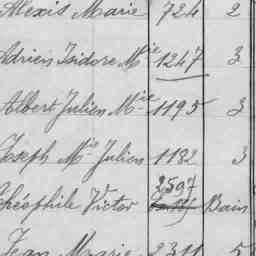 Alexis Marie 724 2
Adrien Isidore Mie 1247 3
Albert Julien Mie 1195 3
Joseph Mie Julien 1182 3
Théophile Victor 2597 Bain
Jean Marie 2311 5